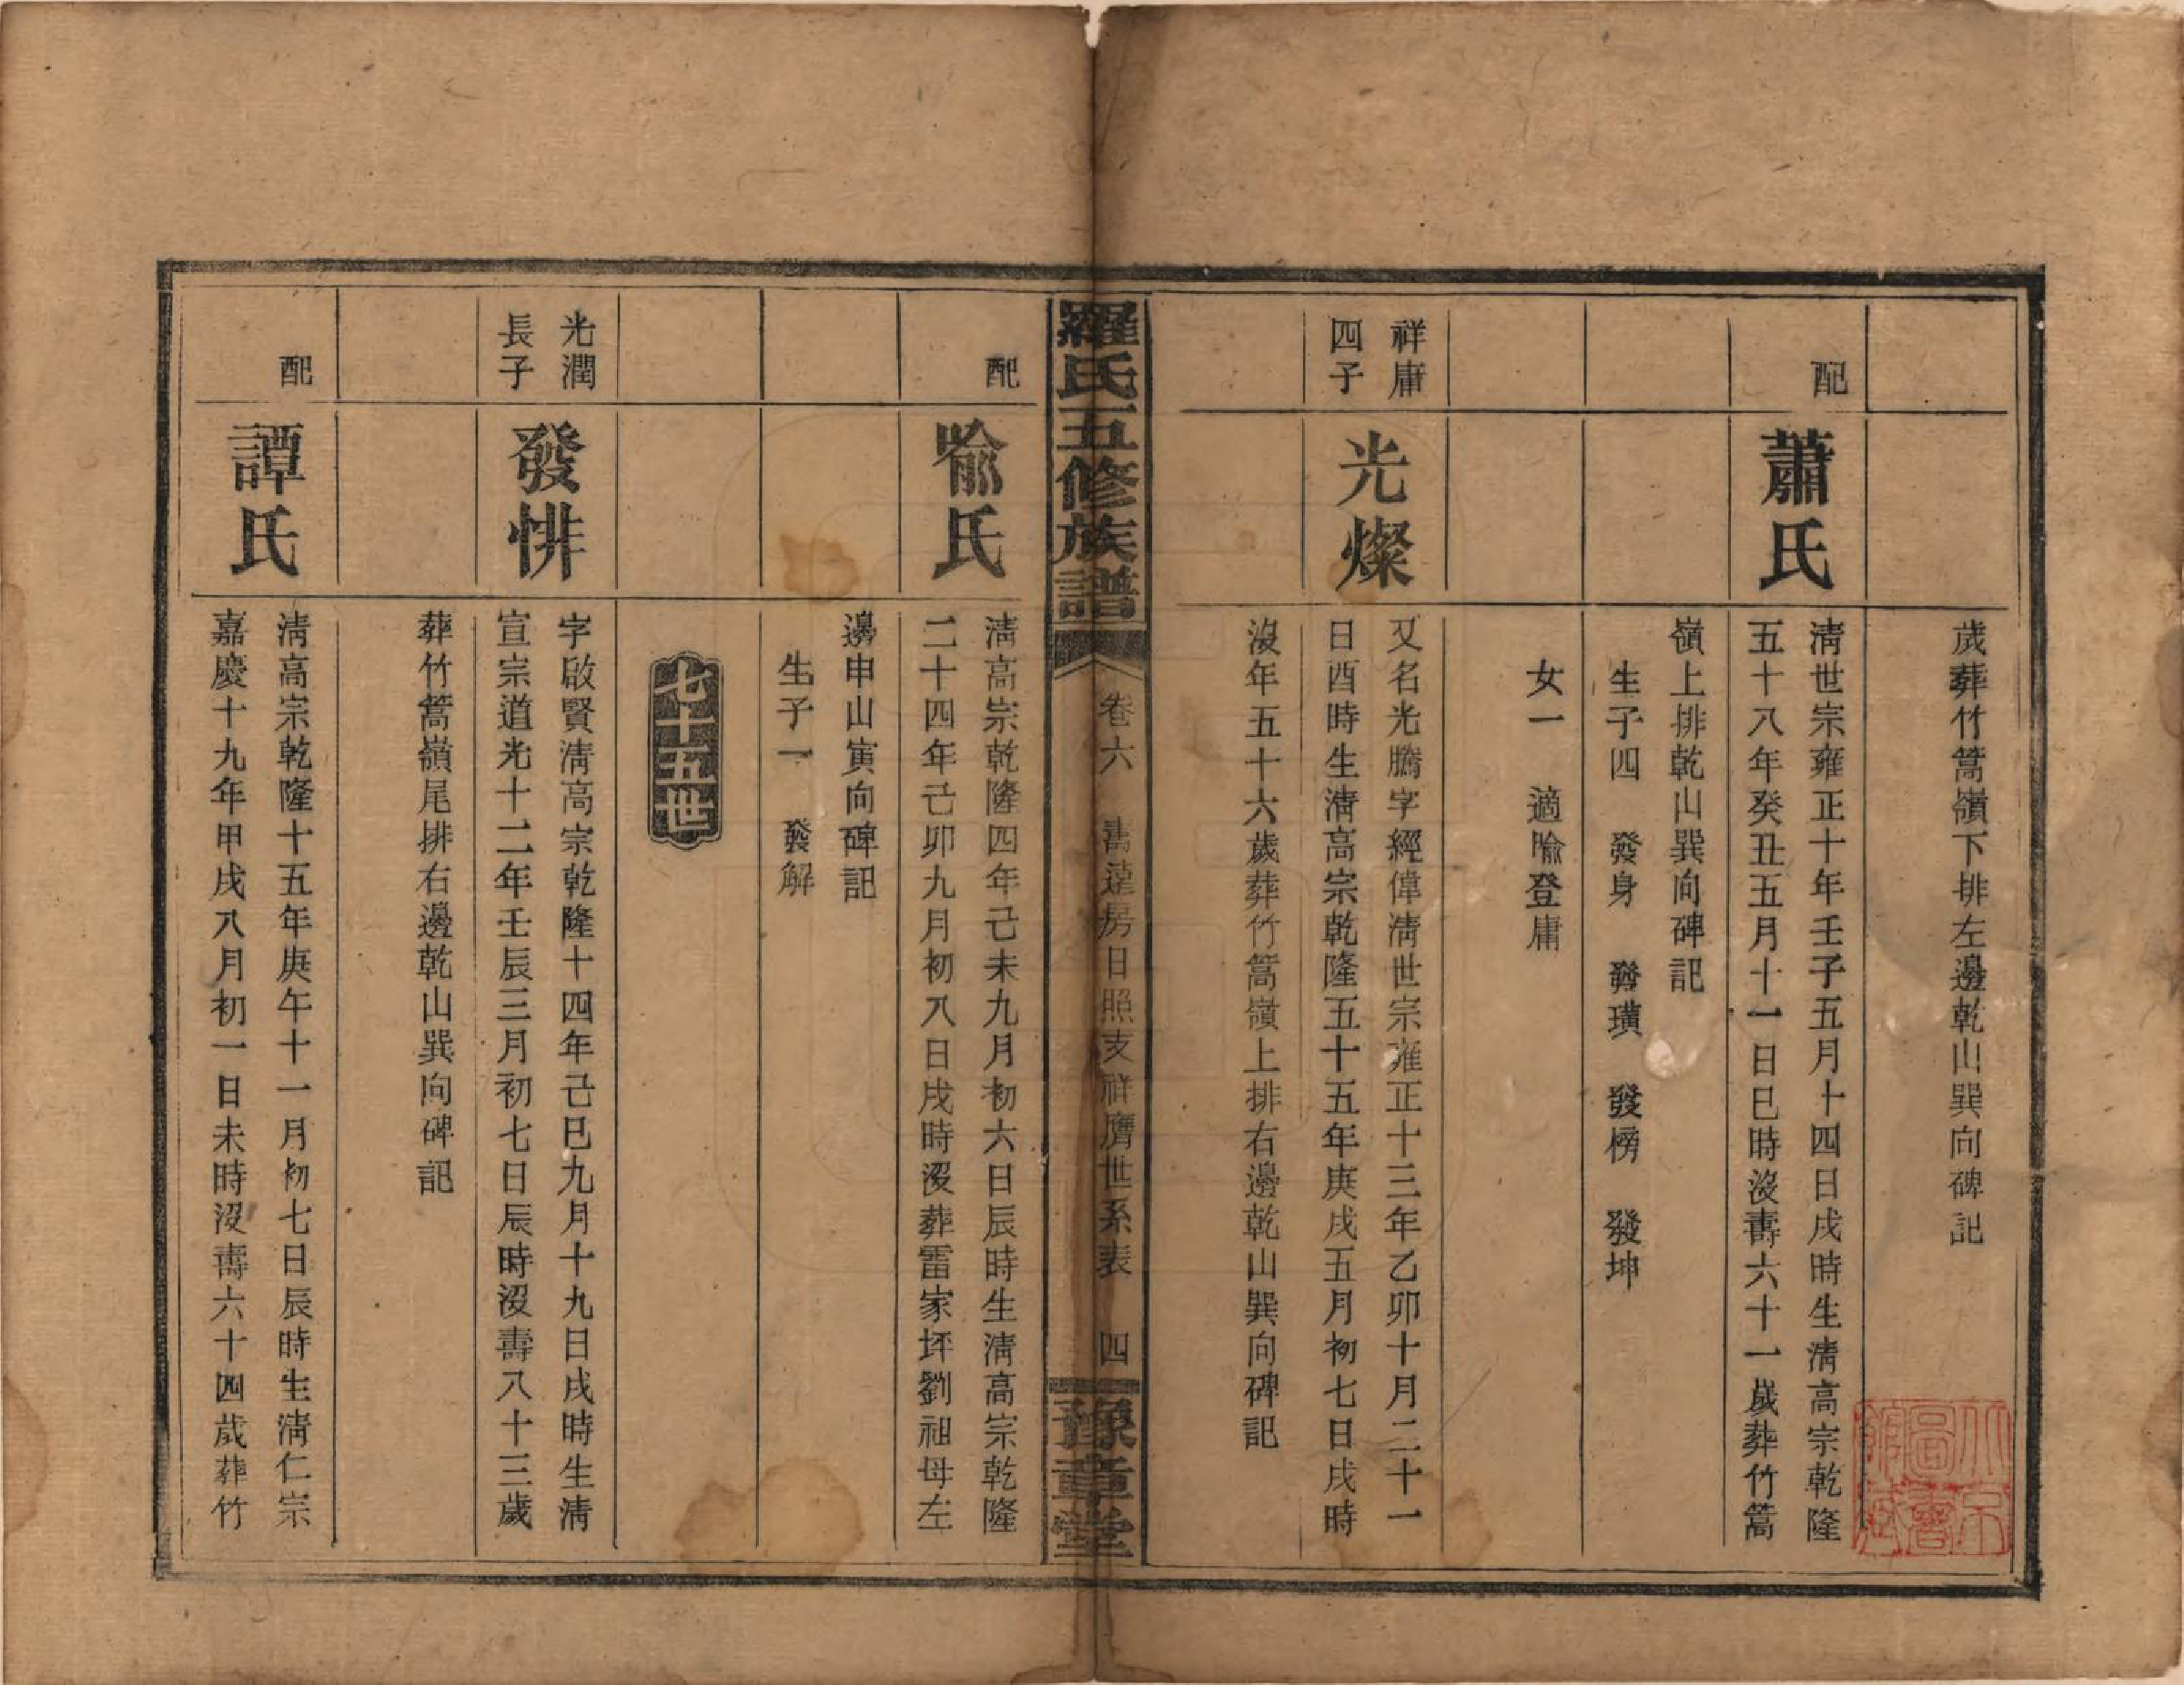 歲葬竹篙嶺下排左邊乾山巽向碑記
配
蕭氏
清世宗雍正十年壬子五月十四日戌時生清高宗乾隆
五十八年癸丑五月十一日巳時沒壽六十一歲葬竹篙
嶺上排乾山巽向碑記
生子四 發身 發璜 發榜 發坤
女一 適喻登庸
祥庸
四子
光燦
又名光騰字經偉清世宗雍正十三年乙卯十月二十一
日酉時生清高宗乾隆五十五年庚戌五月初七日戌時
沒年五十六歲葬竹篙嶺上排右邊乾山巽向碑記
羅氏五修族譜
卷六 壽達房日照支祥賡世系表 四
豫章堂
配
喻氏
清高宗乾隆四年己未九月初六日辰時生清高宗乾隆
二十四年己卯九月初八日戌時沒葬雷家坪劉祖母左
邊申山寅向碑記
生子一 發解
七十五世
光潤
長子
發悱
字啟賢清高宗乾隆十四年己巳九月十九日戌時生清
宣宗道光十二年壬辰三月初七日辰時沒壽八十三歲
葬竹篙嶺尾排右邊乾山巽向碑記
配
譚氏
清高宗乾隆十五年庚午十一月初七日辰時生清仁宗
嘉慶十九年甲戌八月初一日未時沒壽六十四歲葬竹
北京
圖書
館藏